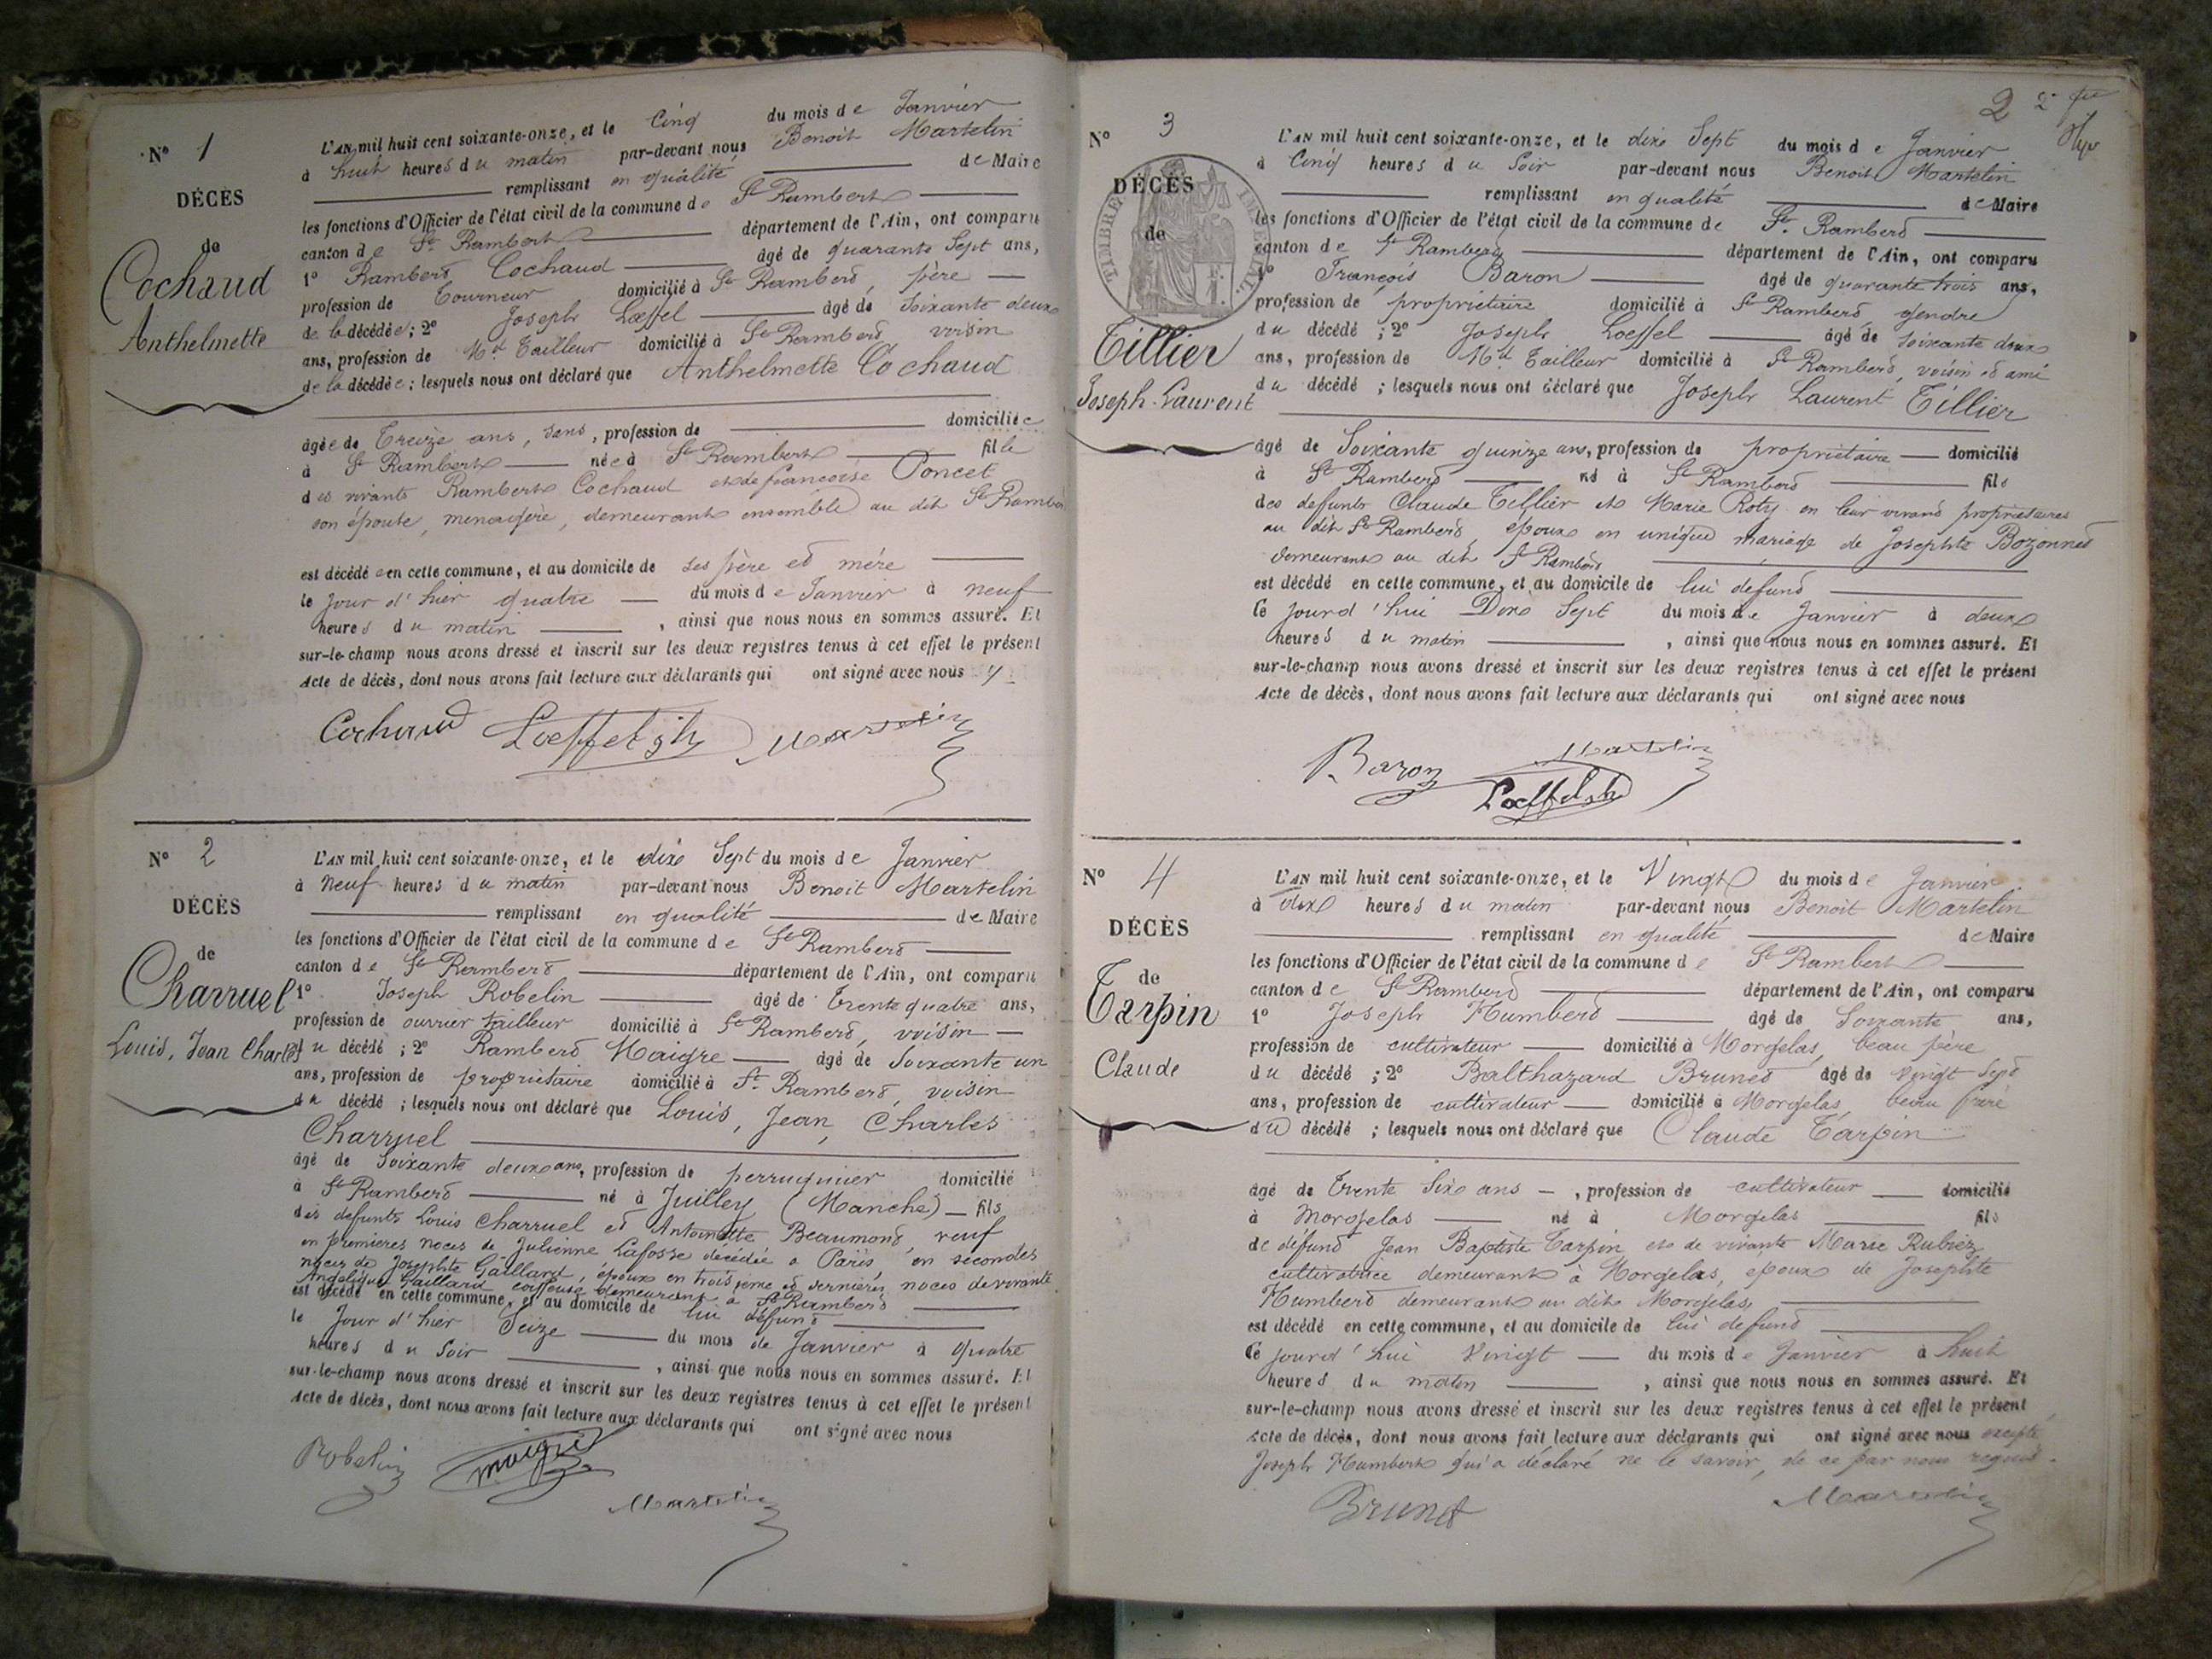 N° 1
DÉCÈS
de
Cochaud
Anthelmette
L'AN mil huit cent soixante-onze, et le Cinq du mois de Janvier
à huit heures du matin par-devant nous Benoit Martelin
remplissant en qualité de Maire
les fonctions d'Officier de l'état civil de la commune de St Rambert
canton de St Rambert département de l'Ain, ont comparu
1° Rambert Cochaud âgé de quarante Sept ans,
profession de Tourneur domicilié à St Rambert, père
de la décédée; 2° Joseph Loeffel âgé de Soixante deux
ans, profession de Md Tailleur domicilié à St Rambert, voisin
de la décédée; lesquels nous ont déclaré que Anthelmette Cochaud
âgée de Treize ans, sans, profession de domiciliée
à St Rambert née à St Rambert fille
des vivants Rambert Cochaud et de françoise Poncet
son épouse, menagère, demeurants ensemble au dit St Rambert
est décédée en cette commune, et au domicile de ses père et mère
le Jour d'hier quatre du mois de Janvier à neuf
heures du matin, ainsi que nous nous en sommes assuré. Et
sur-le-champ nous avons dressé et inscrit sur les deux registres tenus à cet effet le présent
Acte de décès, dont nous avons fait lecture aux déclarants qui ont signé avec nous
Cochaud Loeffel Martelin
N° 2
DÉCÈS
de
Charruel
Louis, Jean Charles
L'AN mil huit cent soixante-onze, et le dix Sept du mois de Janvier
à Neuf heures du matin par-devant nous Benoit Martelin
remplissant en qualité de Maire
les fonctions d'Officier de l'état civil de la commune de St Rambert
canton de St Rambert département de l'Ain, ont comparu
1° Joseph Robelin âgé de Trente quatre ans,
profession de ouvrier tailleur domicilié à St Rambert, voisin
du décédé; 2° Rambert Maigre âgé de Soixante un
ans, profession de propriétaire domicilié à St Rambert, voisin
du décédé; lesquels nous ont déclaré que Louis, Jean, Charles
Charruel
âgé de Soixante deux ans, profession de perruquier domicilié
à St Rambert né à Juilley (Manche) fils
des defunts Louis Charruel et Antoinette Beaumont, veuf
en premières noces de Julienne Lafosse décédée a Paris, en secondes
noces de Josephte Gaillard, époux en troisième et dernières noces de vivante
Angélique Gaillard coiffeuse demeurant a St Rambert
est décédé en cette commune, et au domicile de lui défunt
le Jour d'hier Seize du mois de Janvier à quatre
heures du Soir, ainsi que nous nous en sommes assuré. Et
sur-le-champ nous avons dressé et inscrit sur les deux registres tenus à cet effet le présent
Acte de décès, dont nous avons fait lecture aux déclarants qui ont signé avec nous
Robelin maigre
Martelin
2 2e
N° 3
DÉCÈS
de
TIMBRE IMPÉRIAL
Tillier
Joseph-Laurent
L'AN mil huit cent soixante-onze, et le dix Sept du mois de Janvier
à Cinq heures du Soir par-devant nous Benoit Martelin
remplissant en qualité de Maire
les fonctions d'Officier de l'état civil de la commune de St Rambert
canton de St Rambert département de l'Ain, ont comparu
1° François Baron âgé de quarante trois ans,
profession de propriétaire domicilié à St Rambert, gendre
du décédé; 2° Joseph Loeffel âgé de Soixante deux
ans, profession de Md Tailleur domicilié à St Rambert, voisin et ami
du décédé; lesquels nous ont déclaré que Joseph Laurent Tillier
âgé de Soixante quinze ans, profession de propriétaire domicilié
à St Rambert né à St Rambert fils
des defunts Claude Tillier et Marie Roty en leur vivant propriétaires
au dit St Rambert, époux en unique mariage de Josephte Bozonnet
demeurant au dit St Rambert
est décédé en cette commune, et au domicile de lui defunt
Ce jourd'hui Dix Sept du mois de Janvier à deux
heures du matin, ainsi que nous nous en sommes assuré. Et
sur-le-champ nous avons dressé et inscrit sur les deux registres tenus à cet effet le présent
Acte de décès, dont nous avons fait lecture aux déclarants qui ont signé avec nous
Baron Martelin
Loeffel
N° 4
DÉCÈS
de
Tarpin
Claude
L'AN mil huit cent soixante-onze, et le Vingt du mois de Janvier
à dix heures du matin par-devant nous Benoit Martelin
remplissant en qualité de Maire
les fonctions d'Officier de l'état civil de la commune de St Rambert
canton de St Rambert département de l'Ain, ont comparu
1° Joseph Humbert âgé de Soixante ans,
profession de cultivateur domicilié à Morgelas, beau père
du décédé; 2° Balthazard Brunet âgé de vingt Sept
ans, profession de cultivateur domicilié à Morgelas, beau frère
du décédé; lesquels nous ont déclaré que Claude Tarpin
âgé de Trente Six ans, profession de cultivateur domicilié
à Morgelas né à Morgelas fils
de défunt Jean Baptiste Tarpin et de vivante Marie Rubiez
cultivatrice demeurant à Morgelas, époux de Josephte
Humbert demeurant au dit Morgelas,
est décédé en cette commune, et au domicile de lui defunt
Ce jourd'hui Vingt du mois de Janvier à huit
heures du matin, ainsi que nous nous en sommes assuré. Et
sur-le-champ nous avons dressé et inscrit sur les deux registres tenus à cet effet le présent
Acte de décès, dont nous avons fait lecture aux déclarants qui ont signé avec nous excepté
Joseph Humbert qui a déclaré ne le savoir, de ce par nous requis.
Brunet Martelin